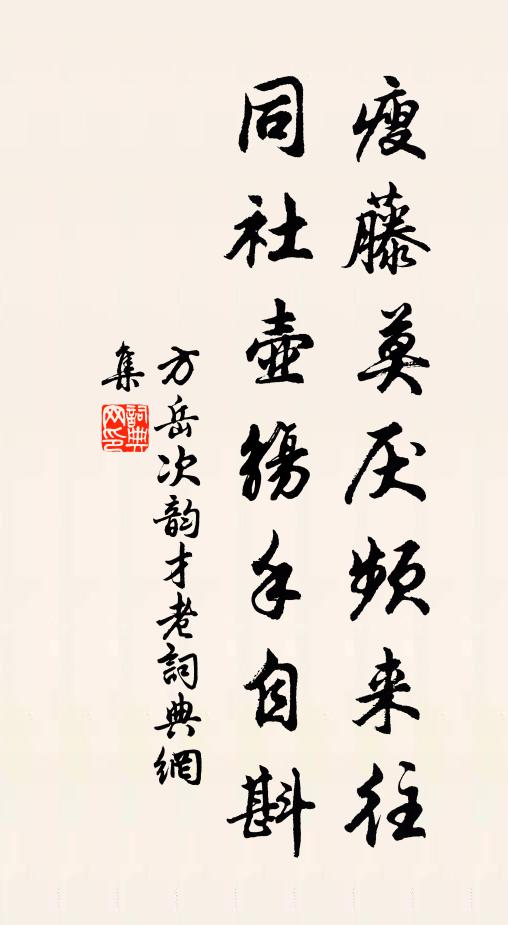 瘦藤莫厌频来往
同社壶觞手自斟
方岳次韵才老詞典網
集
詞典网印